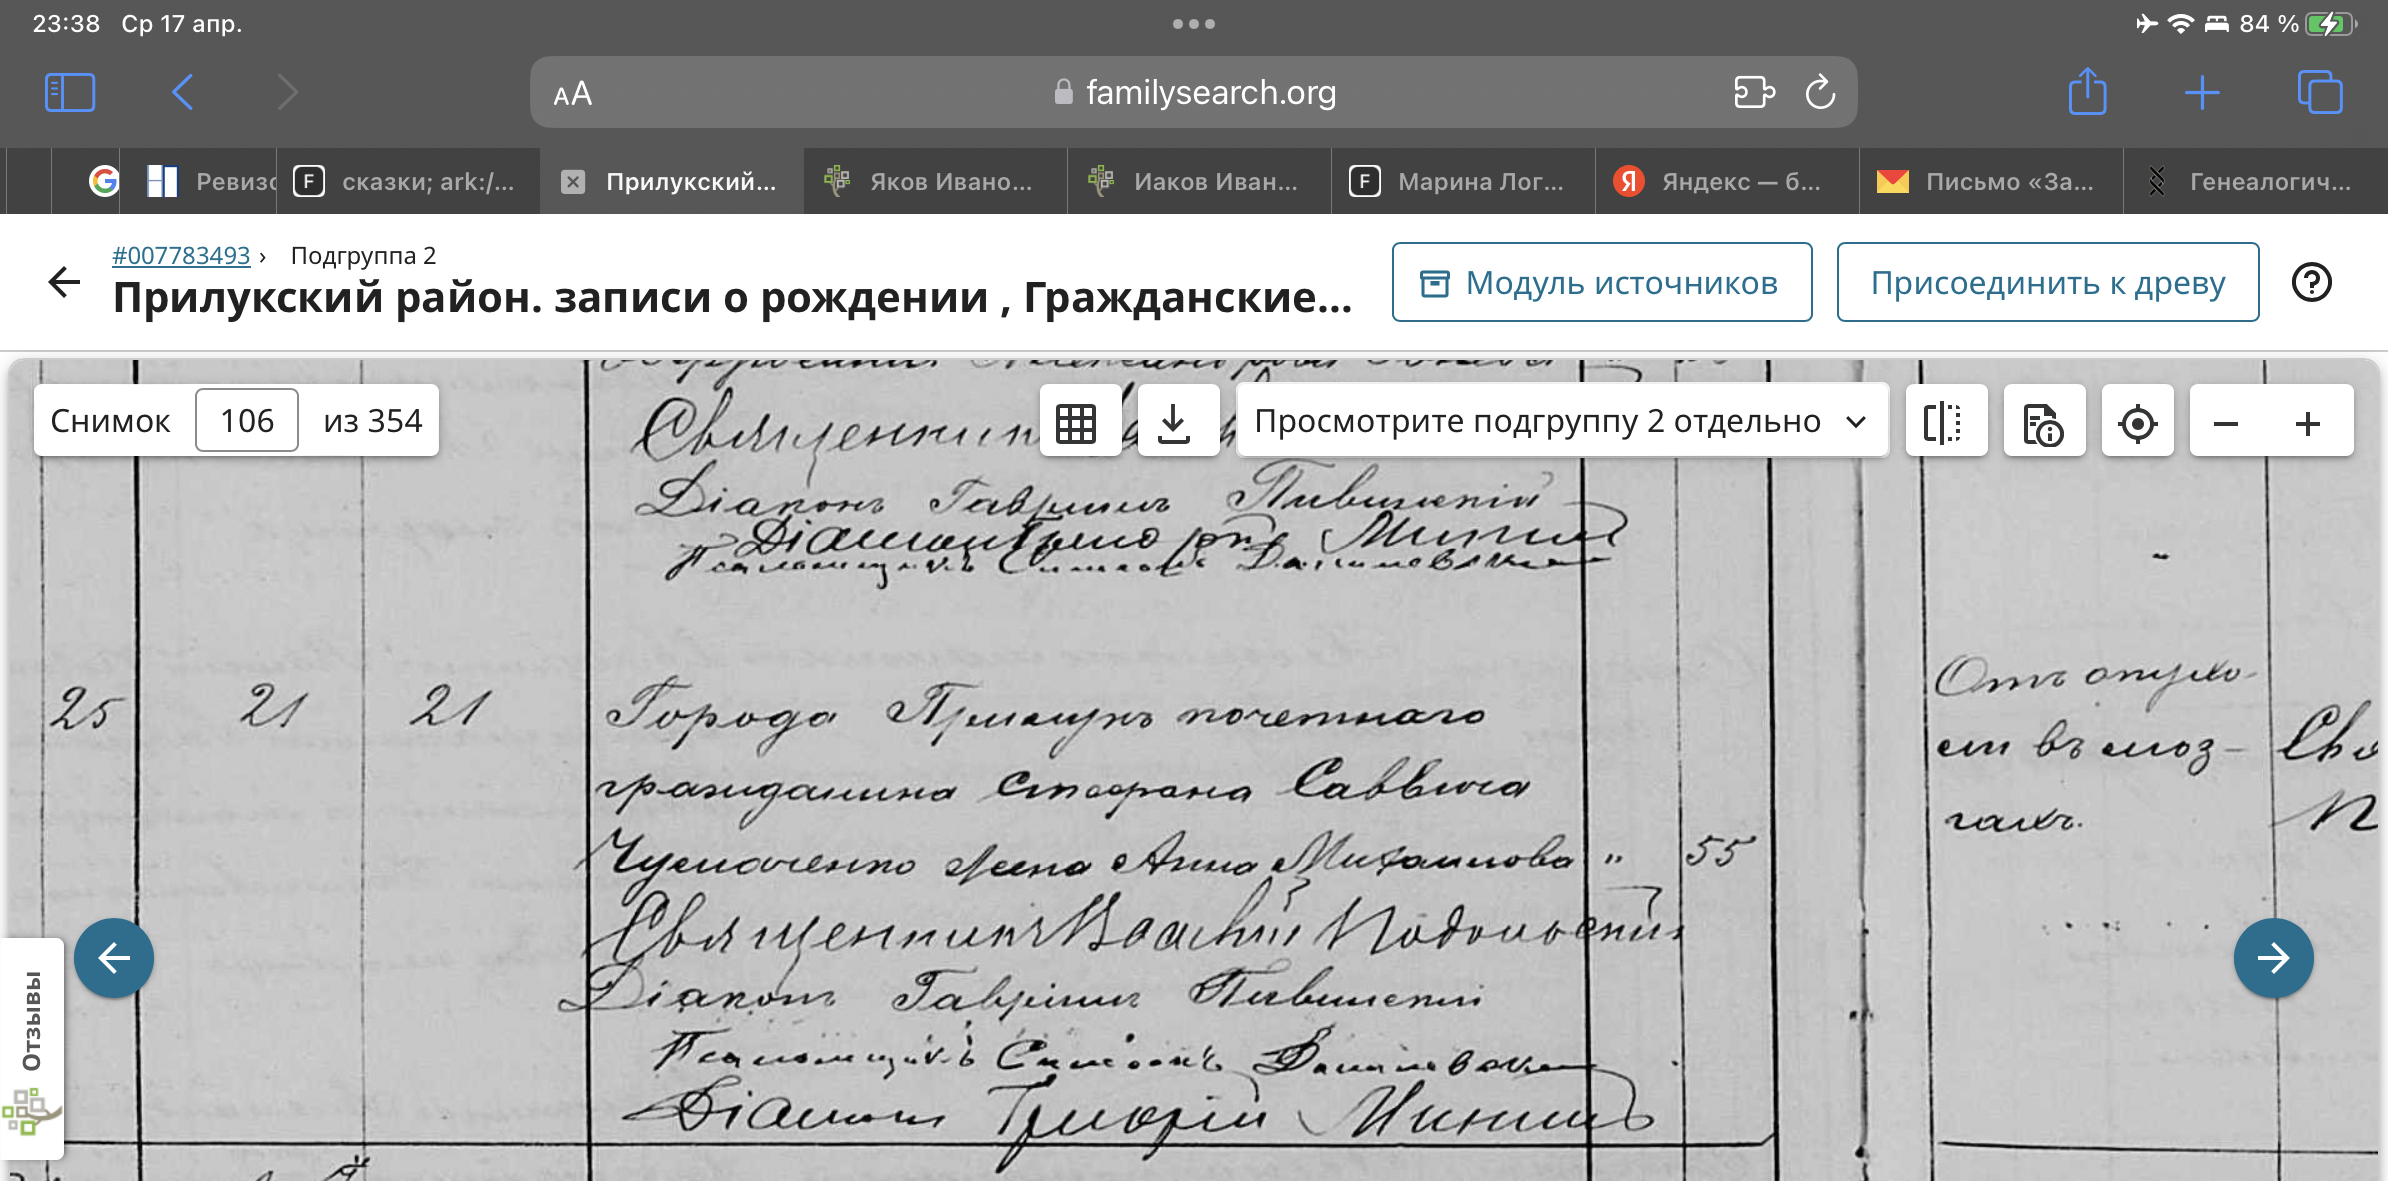 23:38 Ср 17 апр.
84 %
AA familysearch.org
Ревизс
F сказки; ark:/...
Прилукский...
Яков Ивано...
Иаков Иван...
F Марина Лог...
Я Яндекс — б...
Письмо «За...
Генеалогич...
#007783493 › Подгруппа 2
Прилукский район. записи о рождении , Гражданские...
Модуль источников
Присоединить к древу
Снимок 106 из 354
Просмотрите подгруппу 2 отдельно
Священникъ
Діаконъ Гавріилъ
Діаконъ
Псаломщикъ Симеонъ Данилевскій
25 21 21 Города Прилукъ почетнаго
гражданина Стефана Саввича
Чумаченко жена Анна Михаилова " 55
Священникъ Василій Подольскій
Діаконъ Гавріилъ
Псаломщикъ Симеонъ Данилевскій
Діаконъ Григорій
Отъ опухо-
ли въ моз-
гахъ.
Отзывы